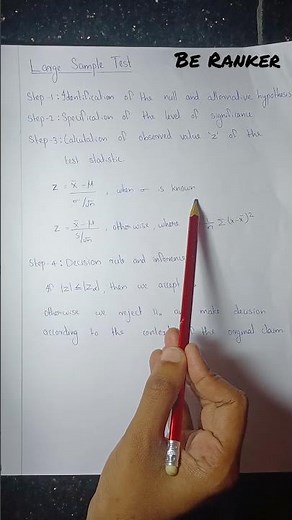 Be Ranker
Large Sample Test
Step-1: Identification of the null and alternative hypothesis
Step-2: Specification of the level of significance
Step-3: Calculation of observed value 'z' of the
test statistic
z = x̄-μ / σ/√n , when σ is known
z = x̄-μ / s/√n , otherwise, where 1/n Σ(x-x̄)²
Step-4: Decision rule and inference
If |z| ≤ |zα|, then we accept
otherwise we reject H₀ and make decision
according to the context of the original claim